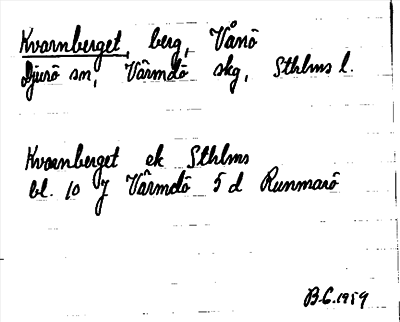 Kvarnberget, berg, Vånö
Djurö sn, Värmdö skg, Sthlms l.
Kvarnberget ek Sthlms
bl. 10 J Värmdö 5 d Runmarö
B.C. 1959